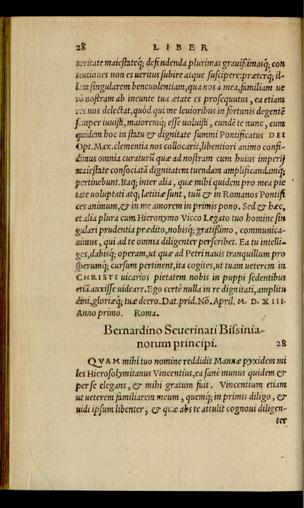 28 LIBER
toritate maiestateq́; defendenda plurimas grauißimasq́; con
tentiones non es ueritus subire atque suscipere: præterq́; il-
lam singularem beneuolentiam, qua nos a mea, familiam ue
rò nostram ab ineunte tua ætate es prosequutus, ea etiam
res nos delectat, quòd qui me leuioribus in fortunis degentẽ
semper iuuisti, maioremq́; esse uoluisti, eundẽ te nunc, cum
quidem hoc in statu & dignitate summi Pontificatus DEI
Opt. Max. clementia nos collocarit, libentiori animo confi-
dimus omnia curaturũ quæ ad nostram cum huius imperij
maiestate consociatã dignitatem tuendam amplificandamq́;
pertinebunt. Itaq; inter alia, quæ mihi quidem pro mea pie
tate uoluptati atq; lætitiæ sunt, tuũ & in Romanos Pontifi
ces animum, & in me amorem in primis pono. Sed & hæc,
et alia plura cum Hieronymo Vicco Legato tuo homine sin
gulari prudentia prædito, nobisq́; gratißimo, communica-
uimus, qui ad te omnia diligenter perscribet. Ea tu intelli-
ges, dabisq́; operam, ut quæ ad Petri nauis tranquillum pro
sperumq́; cursum pertinent, ita cogites, ut tuam ueterem in
CHRISTI uicarios pietatem nobis in puppi sedentibus
etiã auxisse uideare. Ego certè nulla in re dignitati, amplitu
dini, gloriæq́; tuæ deero. Dat. prid. Nõ. April. M. D. XIII.
Anno primo. Roma.
Bernardino Seuerinati Bißinia-
norum principi. 28
QVAM mihi tuo nomine reddidit Mannæ pyxidem mi
les Hierosolymitanus Vincentius, ea sanè munus quidem &
per se elegans, & mihi gratum fuit. Vincentium etiam
ut ueterem familiarem meum, quemq́; in primis diligo, &
uidi ipsum libenter, & quæ abs te attulit cognoui diligen-
ter